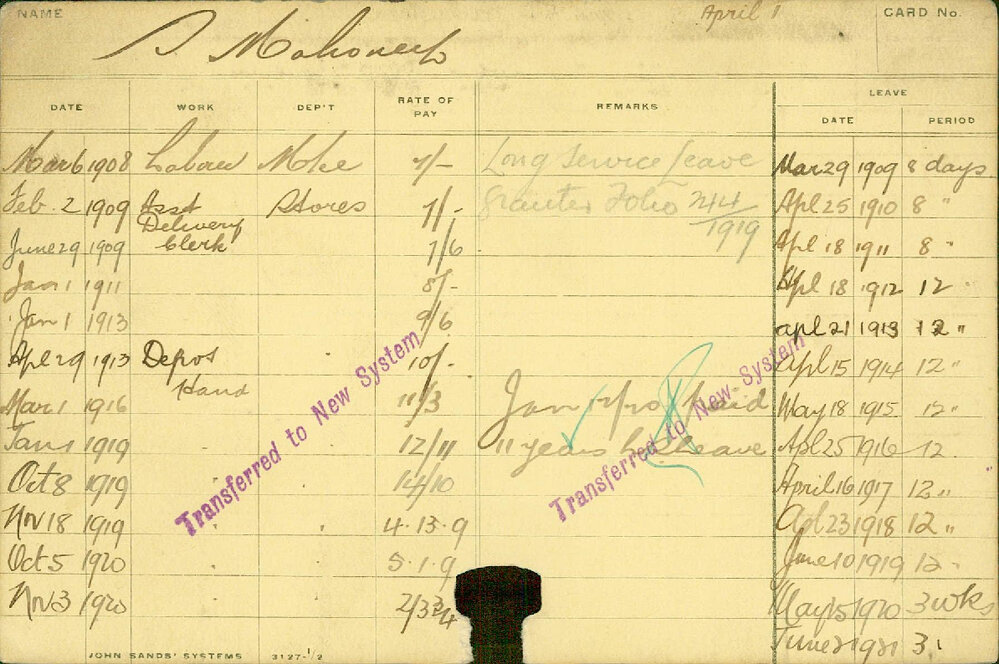 NAME
April 1
CARD No.
S Mahoney
DATE WORK DEP'T RATE OF PAY REMARKS LEAVE
DATE PERIOD
Mar 6 1908 Labour Mtce 7/- Long Service Leave Mar 29 1909 8 days
Feb. 2 1909 Asst Stores 7/- Granted Folio 244/1919 Apl 25 1910 8 "
Delivery
June 29 1909 Clerk 7/6 Apl 18 1911 8 "
Jan 1 1911 8/- Apl 18 1912 12 "
Jan 1 1913 9/6 apl 21 1913 12 "
Apl 29 1913 Depot 10/- Apl 15 1914 12 "
Hand
Mar 1 1916 11/3 Jan paid May 18 1915 12 "
Jan 1 1919 12/11 11 years Leave Apl 25 1916 12
Oct 8 1919 14/10 April 16 1917 12 "
Nov 18 1919 4.13.9 Apl 23 1918 12 "
Oct 5 1920 5.1.9 June 10 1919 12 "
Nov 3 1920 May 15 1920 3 wks
June 2 1921 3
Transferred to New System
Transferred to New System
JOHN SANDS' SYSTEMS 3127-1/2